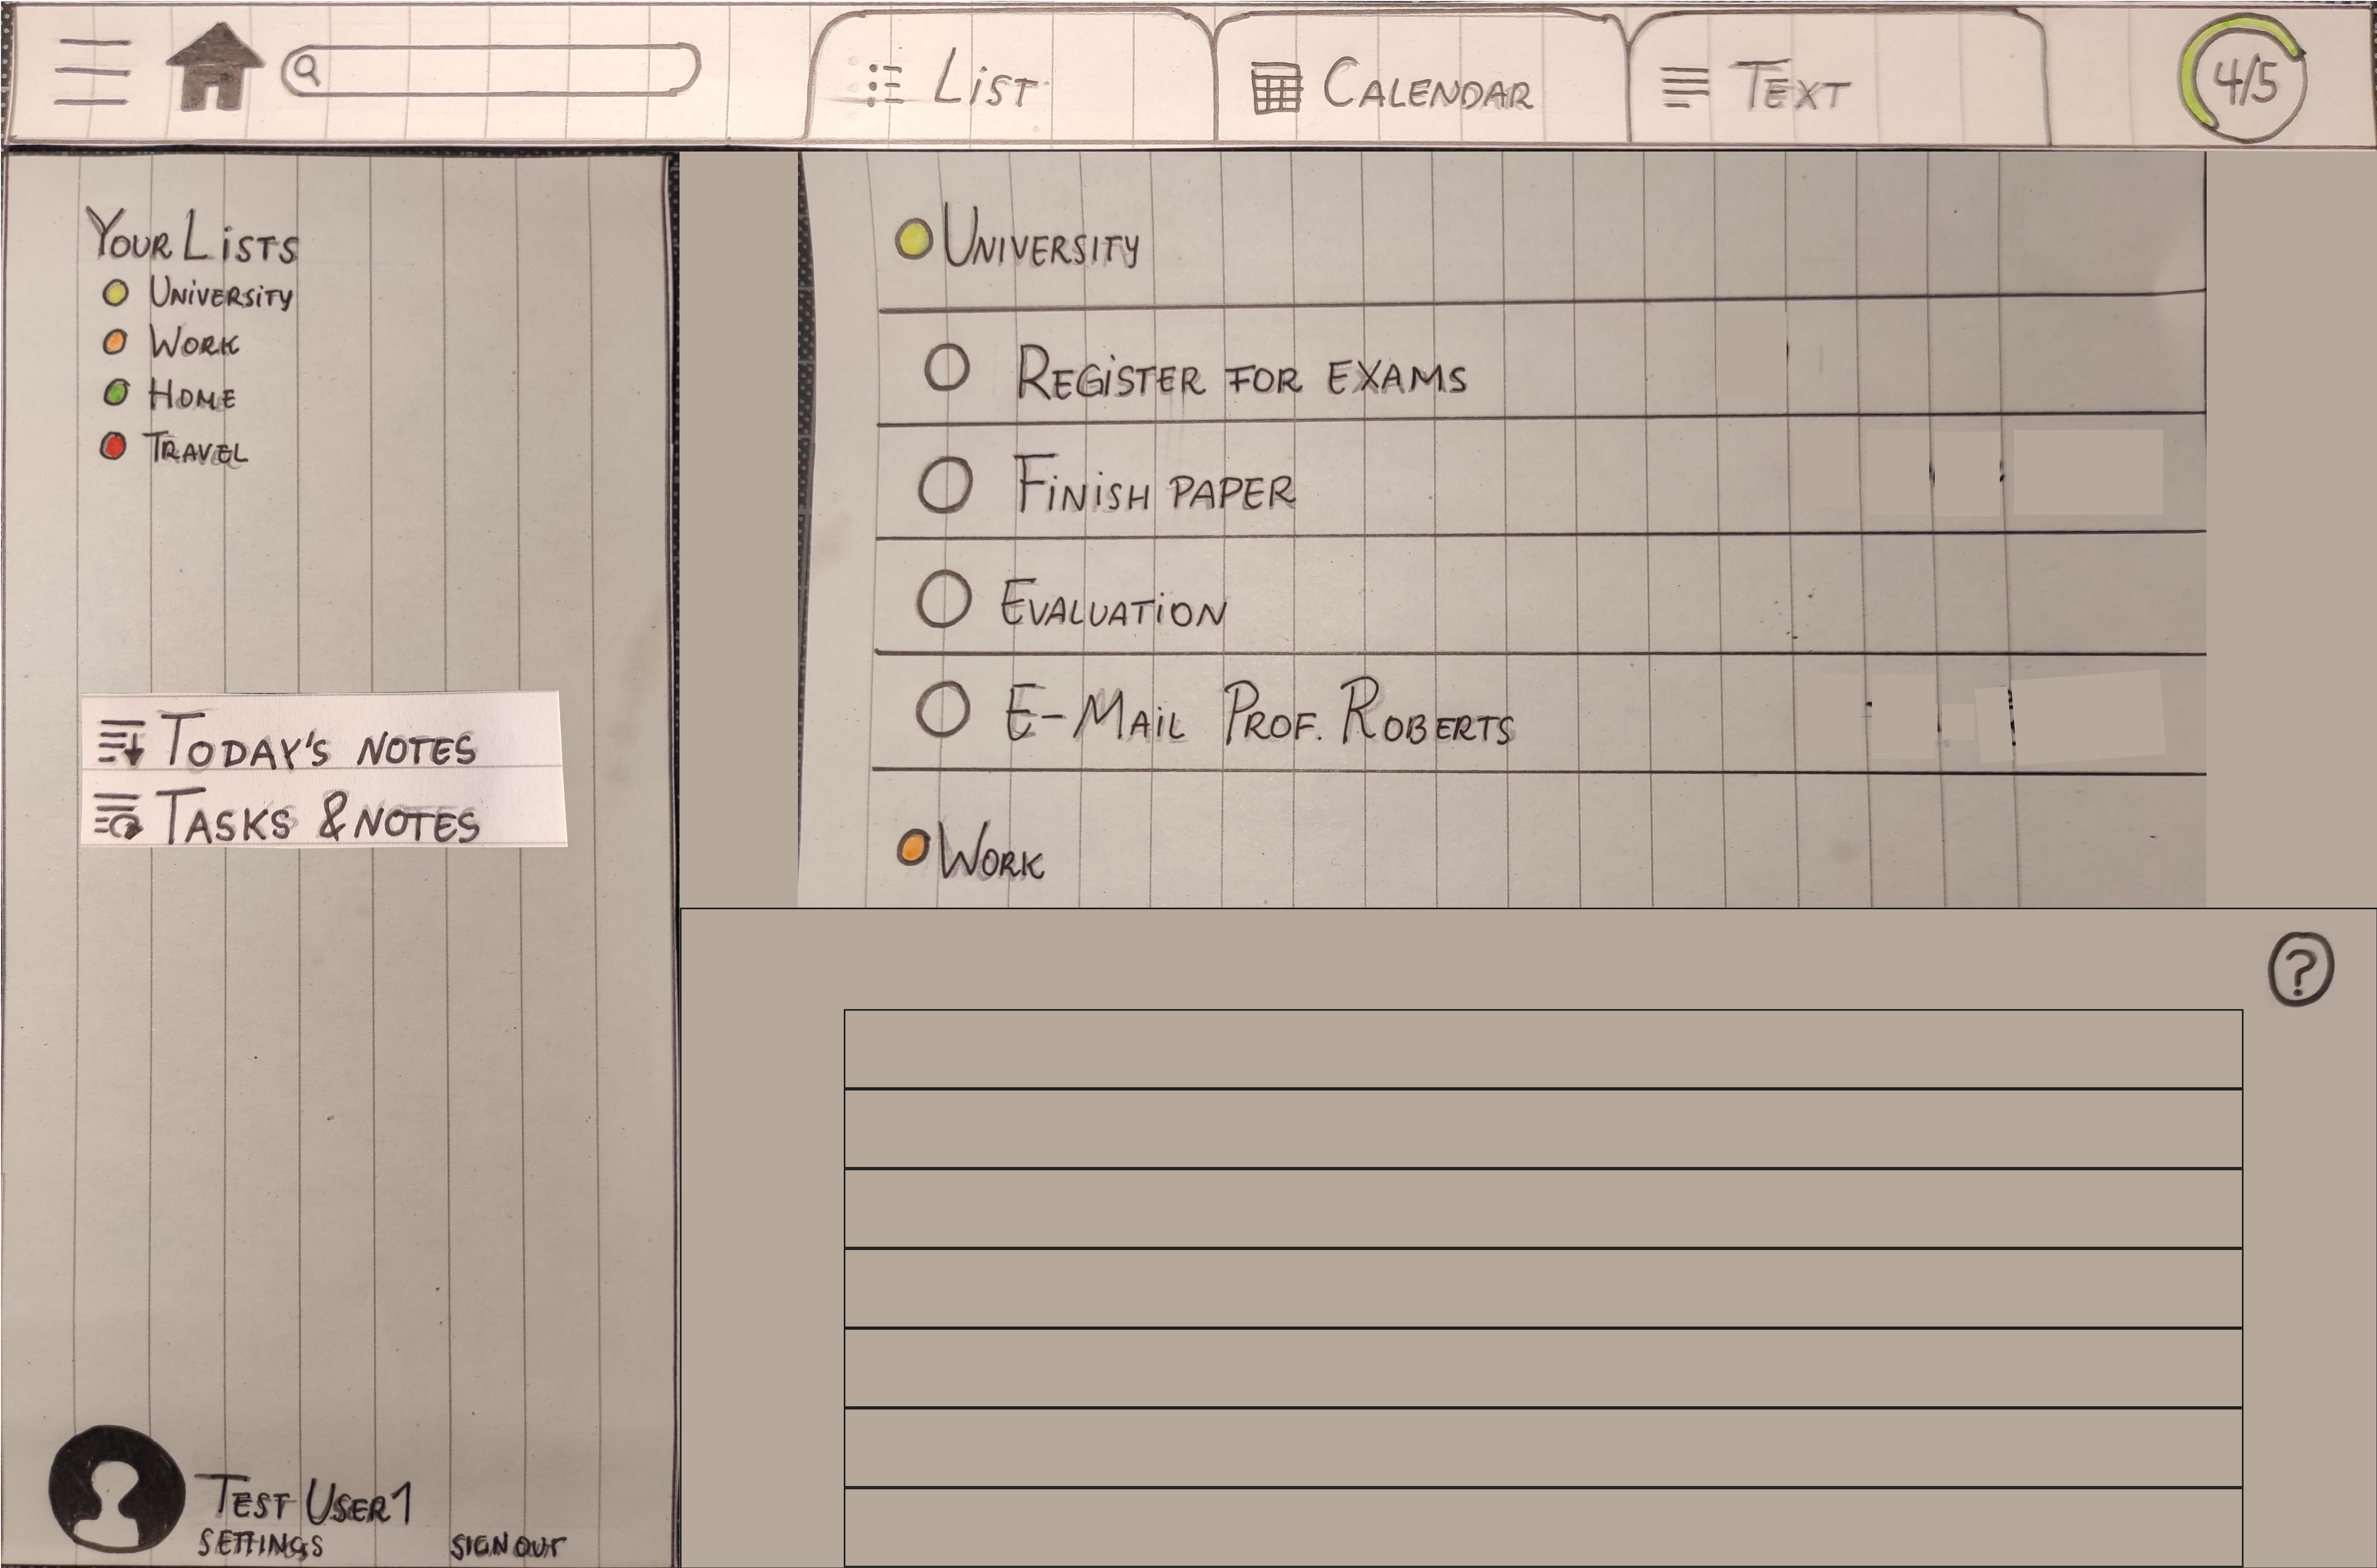 List
Calendar
Text
4/5
Your Lists
University
Work
Home
Travel
Today's notes
Tasks & notes
Test User 1
Settings
Sign out
University
Register for exams
Finish paper
Evaluation
E-Mail Prof. Roberts
Work
?